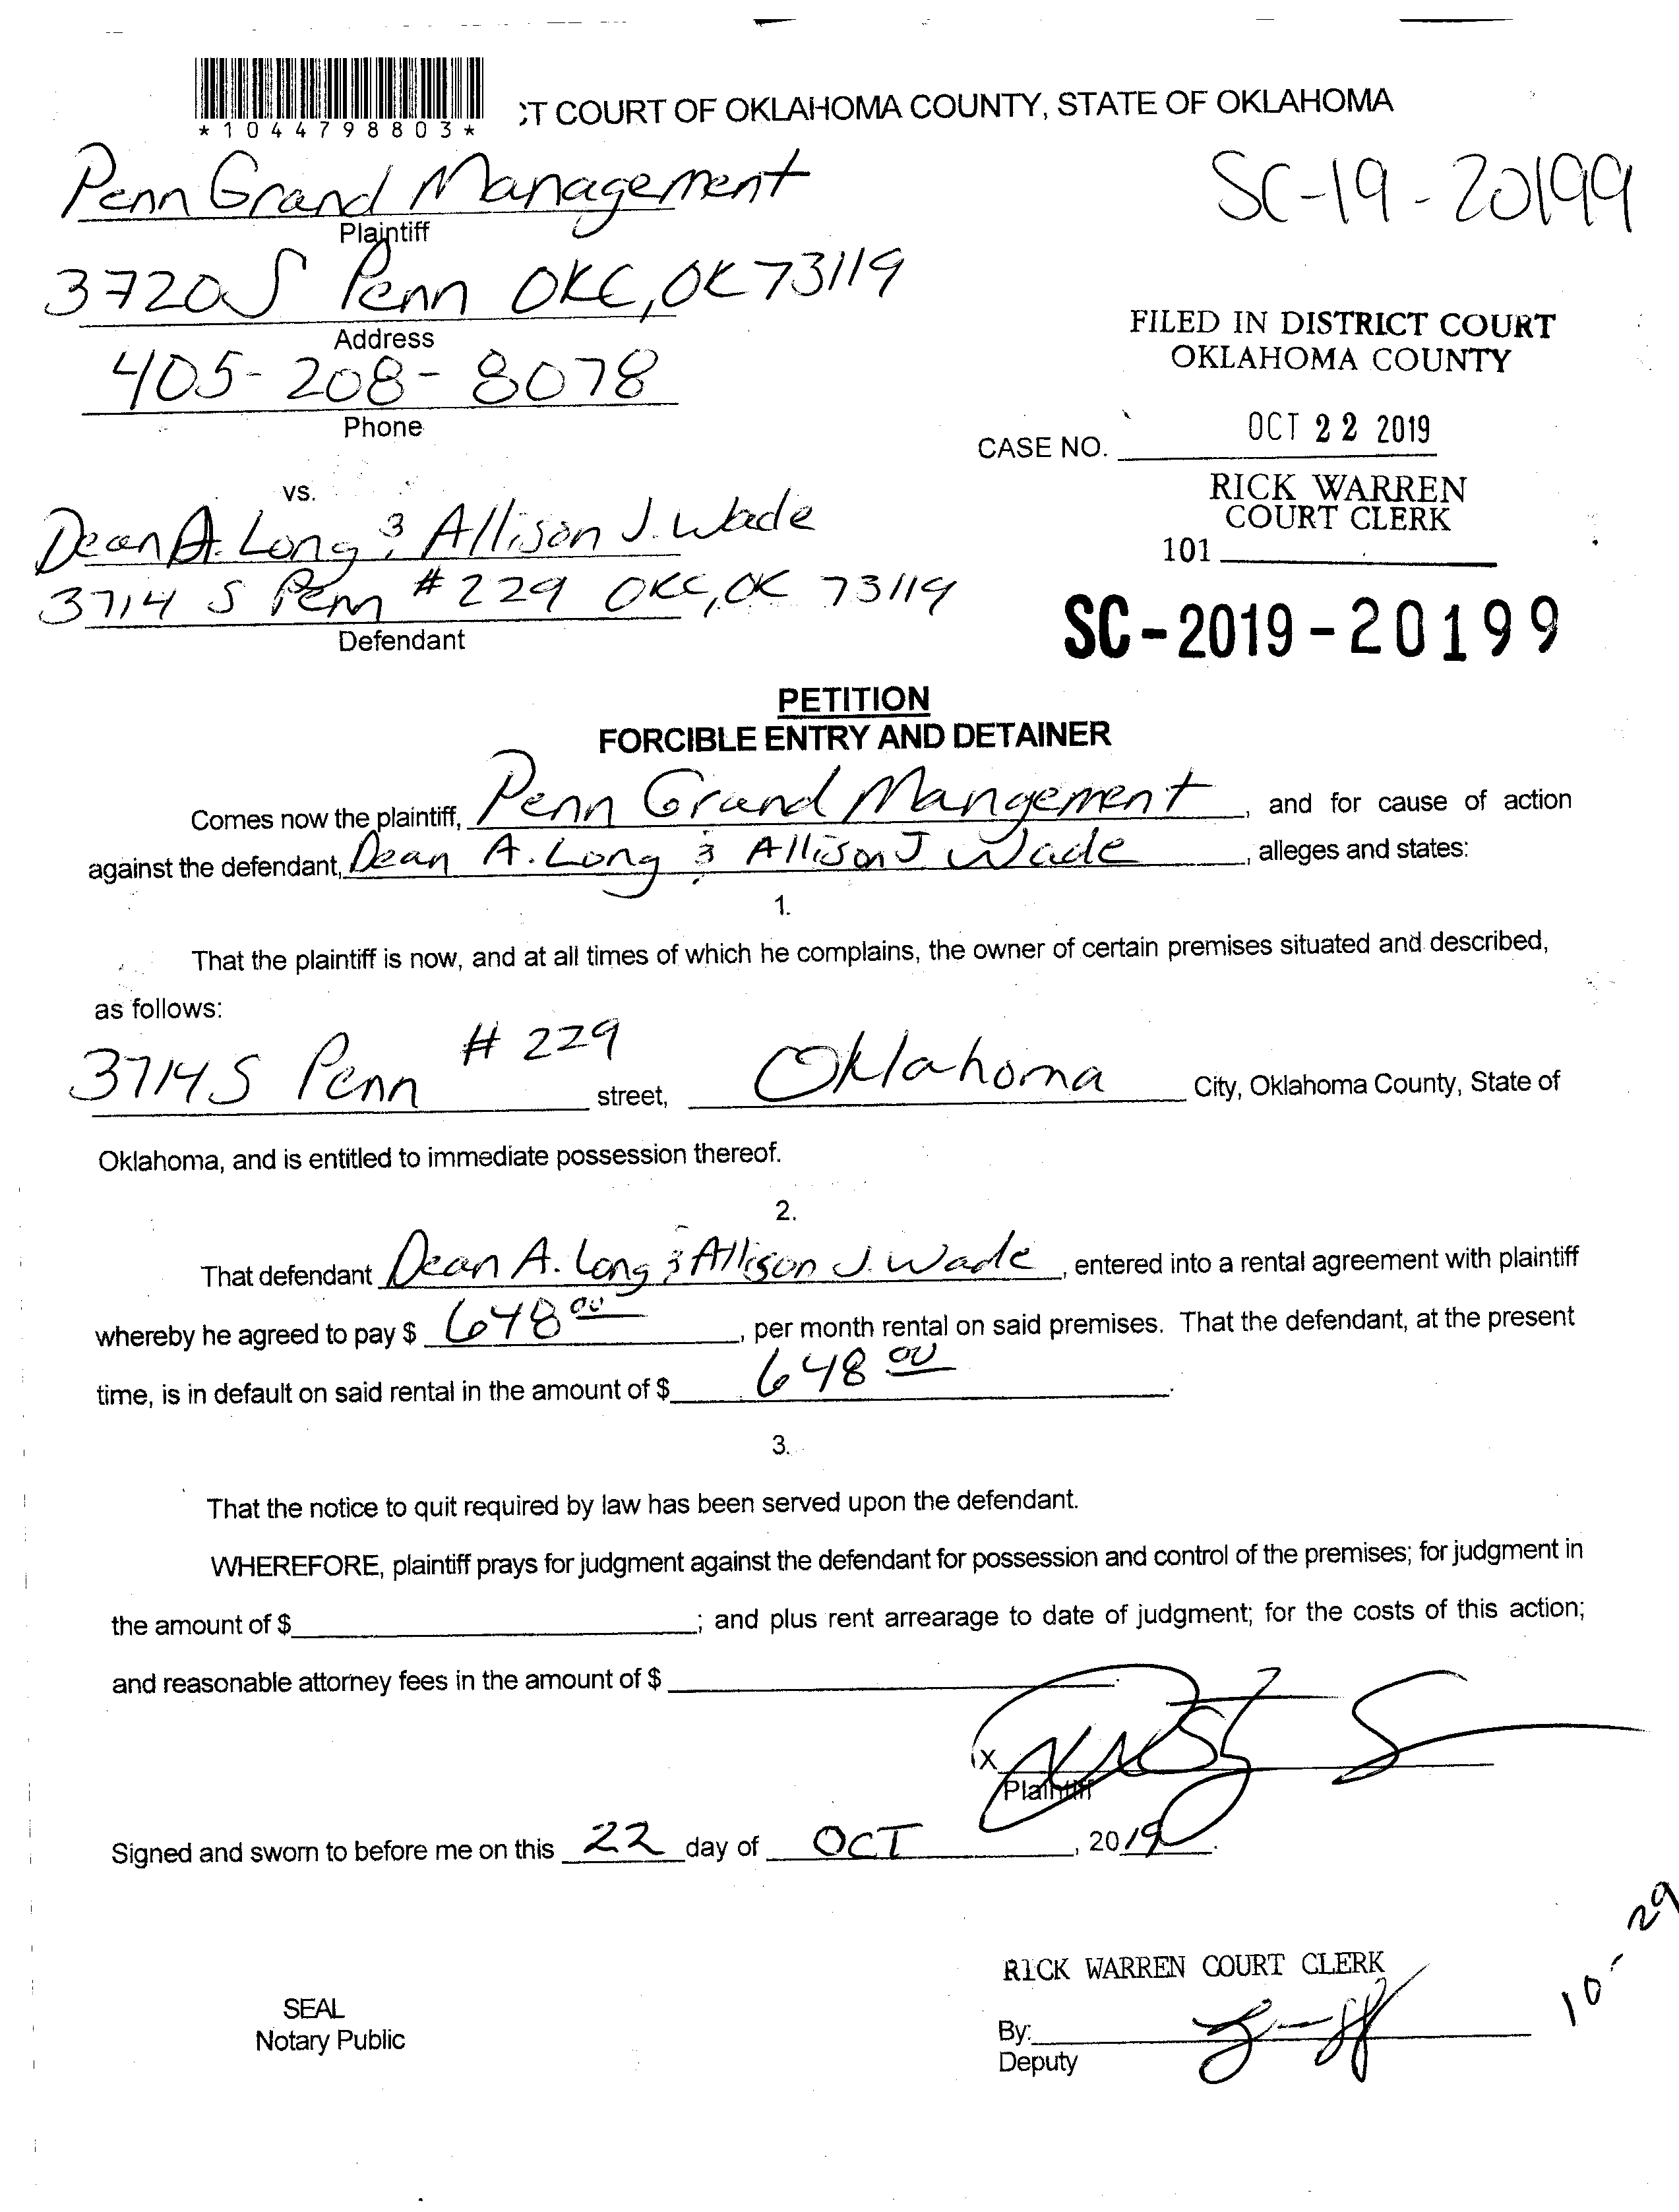 *1044798803*
CT COURT OF OKLAHOMA COUNTY, STATE OF OKLAHOMA
Penn Grand Management
Plaintiff
SC-19-20199
3720 S Penn OKC, OK 73119
Address
FILED IN DISTRICT COURT
OKLAHOMA COUNTY
405-208-8078
Phone
OCT 22 2019
CASE NO.
RICK WARREN
COURT CLERK
vs.
Dean A. Long & Allison J. Wade
101
3714 S Penn #229 OKC, OK 73119
Defendant
SC-2019-20199
PETITION
FORCIBLE ENTRY AND DETAINER
Comes now the plaintiff, Penn Grand Mangement, and for cause of action
against the defendant, Dean A. Long & Allison J Wade, alleges and states:
1.
That the plaintiff is now, and at all times of which he complains, the owner of certain premises situated and described,
as follows:
3714 S Penn #229 street, Oklahoma City, Oklahoma County, State of
Oklahoma, and is entitled to immediate possession thereof.
2.
That defendant Dean A. Long & Allison J. Wade, entered into a rental agreement with plaintiff
whereby he agreed to pay $ 648 00, per month rental on said premises. That the defendant, at the present
time, is in default on said rental in the amount of $ 648 00.
3.
That the notice to quit required by law has been served upon the defendant.
WHEREFORE, plaintiff prays for judgment against the defendant for possession and control of the premises; for judgment in
the amount of $ ; and plus rent arrearage to date of judgment; for the costs of this action;
and reasonable attorney fees in the amount of $ .
X
Plaintiff
Signed and sworn to before me on this 22 day of OCT, 2019.
10-29
RICK WARREN COURT CLERK
SEAL
Notary Public
By:
Deputy